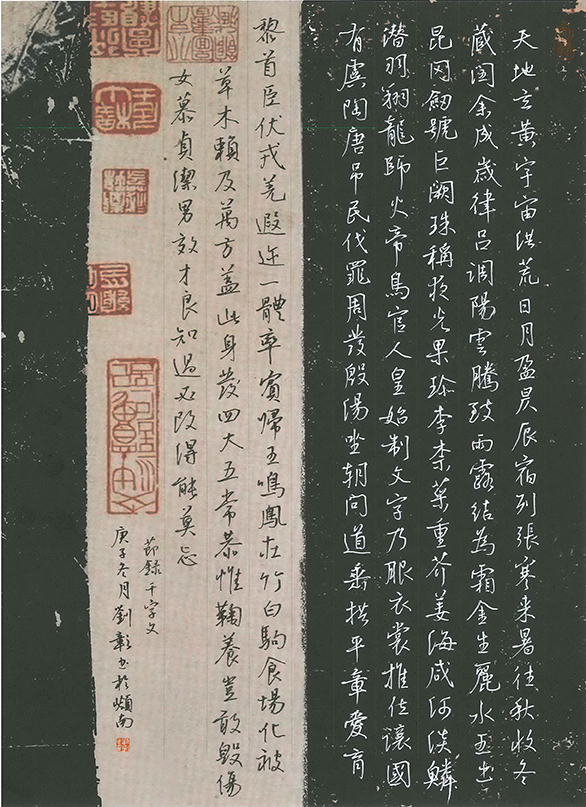 天地玄黃宇宙洪荒日月盈昃辰宿列張寒来暑往秋收冬
藏閏余成歲律呂調陽雲騰致雨露結為霜金生麗水玉出
昆冈劔號巨闕珠稱夜光果珎李柰菜重芥姜海咸河淡鱗
潛羽翔龍師火帝鳥官人皇始制文字乃服衣裳推位讓國
有虞陶唐吊民伐罪周發殷湯坐朝問道垂拱平章愛育
黎首臣伏戎羌遐迩一體率賓歸王鳴鳳在竹白駒食場化被
草木賴及萬方蓋此身發四大五常恭惟鞠養豈敢毀傷
女慕貞潔男效才良知過必改得能莫忘
節錄千字文
庚子冬月劉彰书於潁南